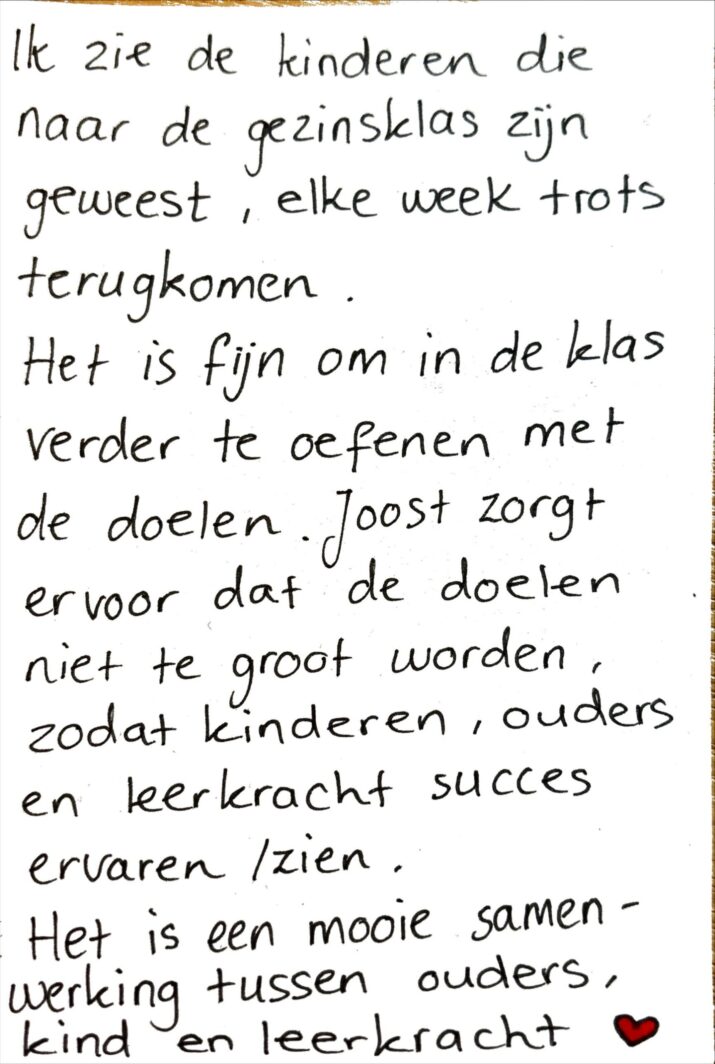 Ik zie de kinderen die
naar de gezinsklas zijn
geweest , elke week trots
terugkomen .
Het is fijn om in de klas
verder te oefenen met
de doelen . Joost zorgt
ervoor dat de doelen
niet te groot worden ,
zodat kinderen , ouders
en leerkracht succes
ervaren /zien .
Het is een mooie samen-
werking tussen ouders ,
kind en leerkracht ❤